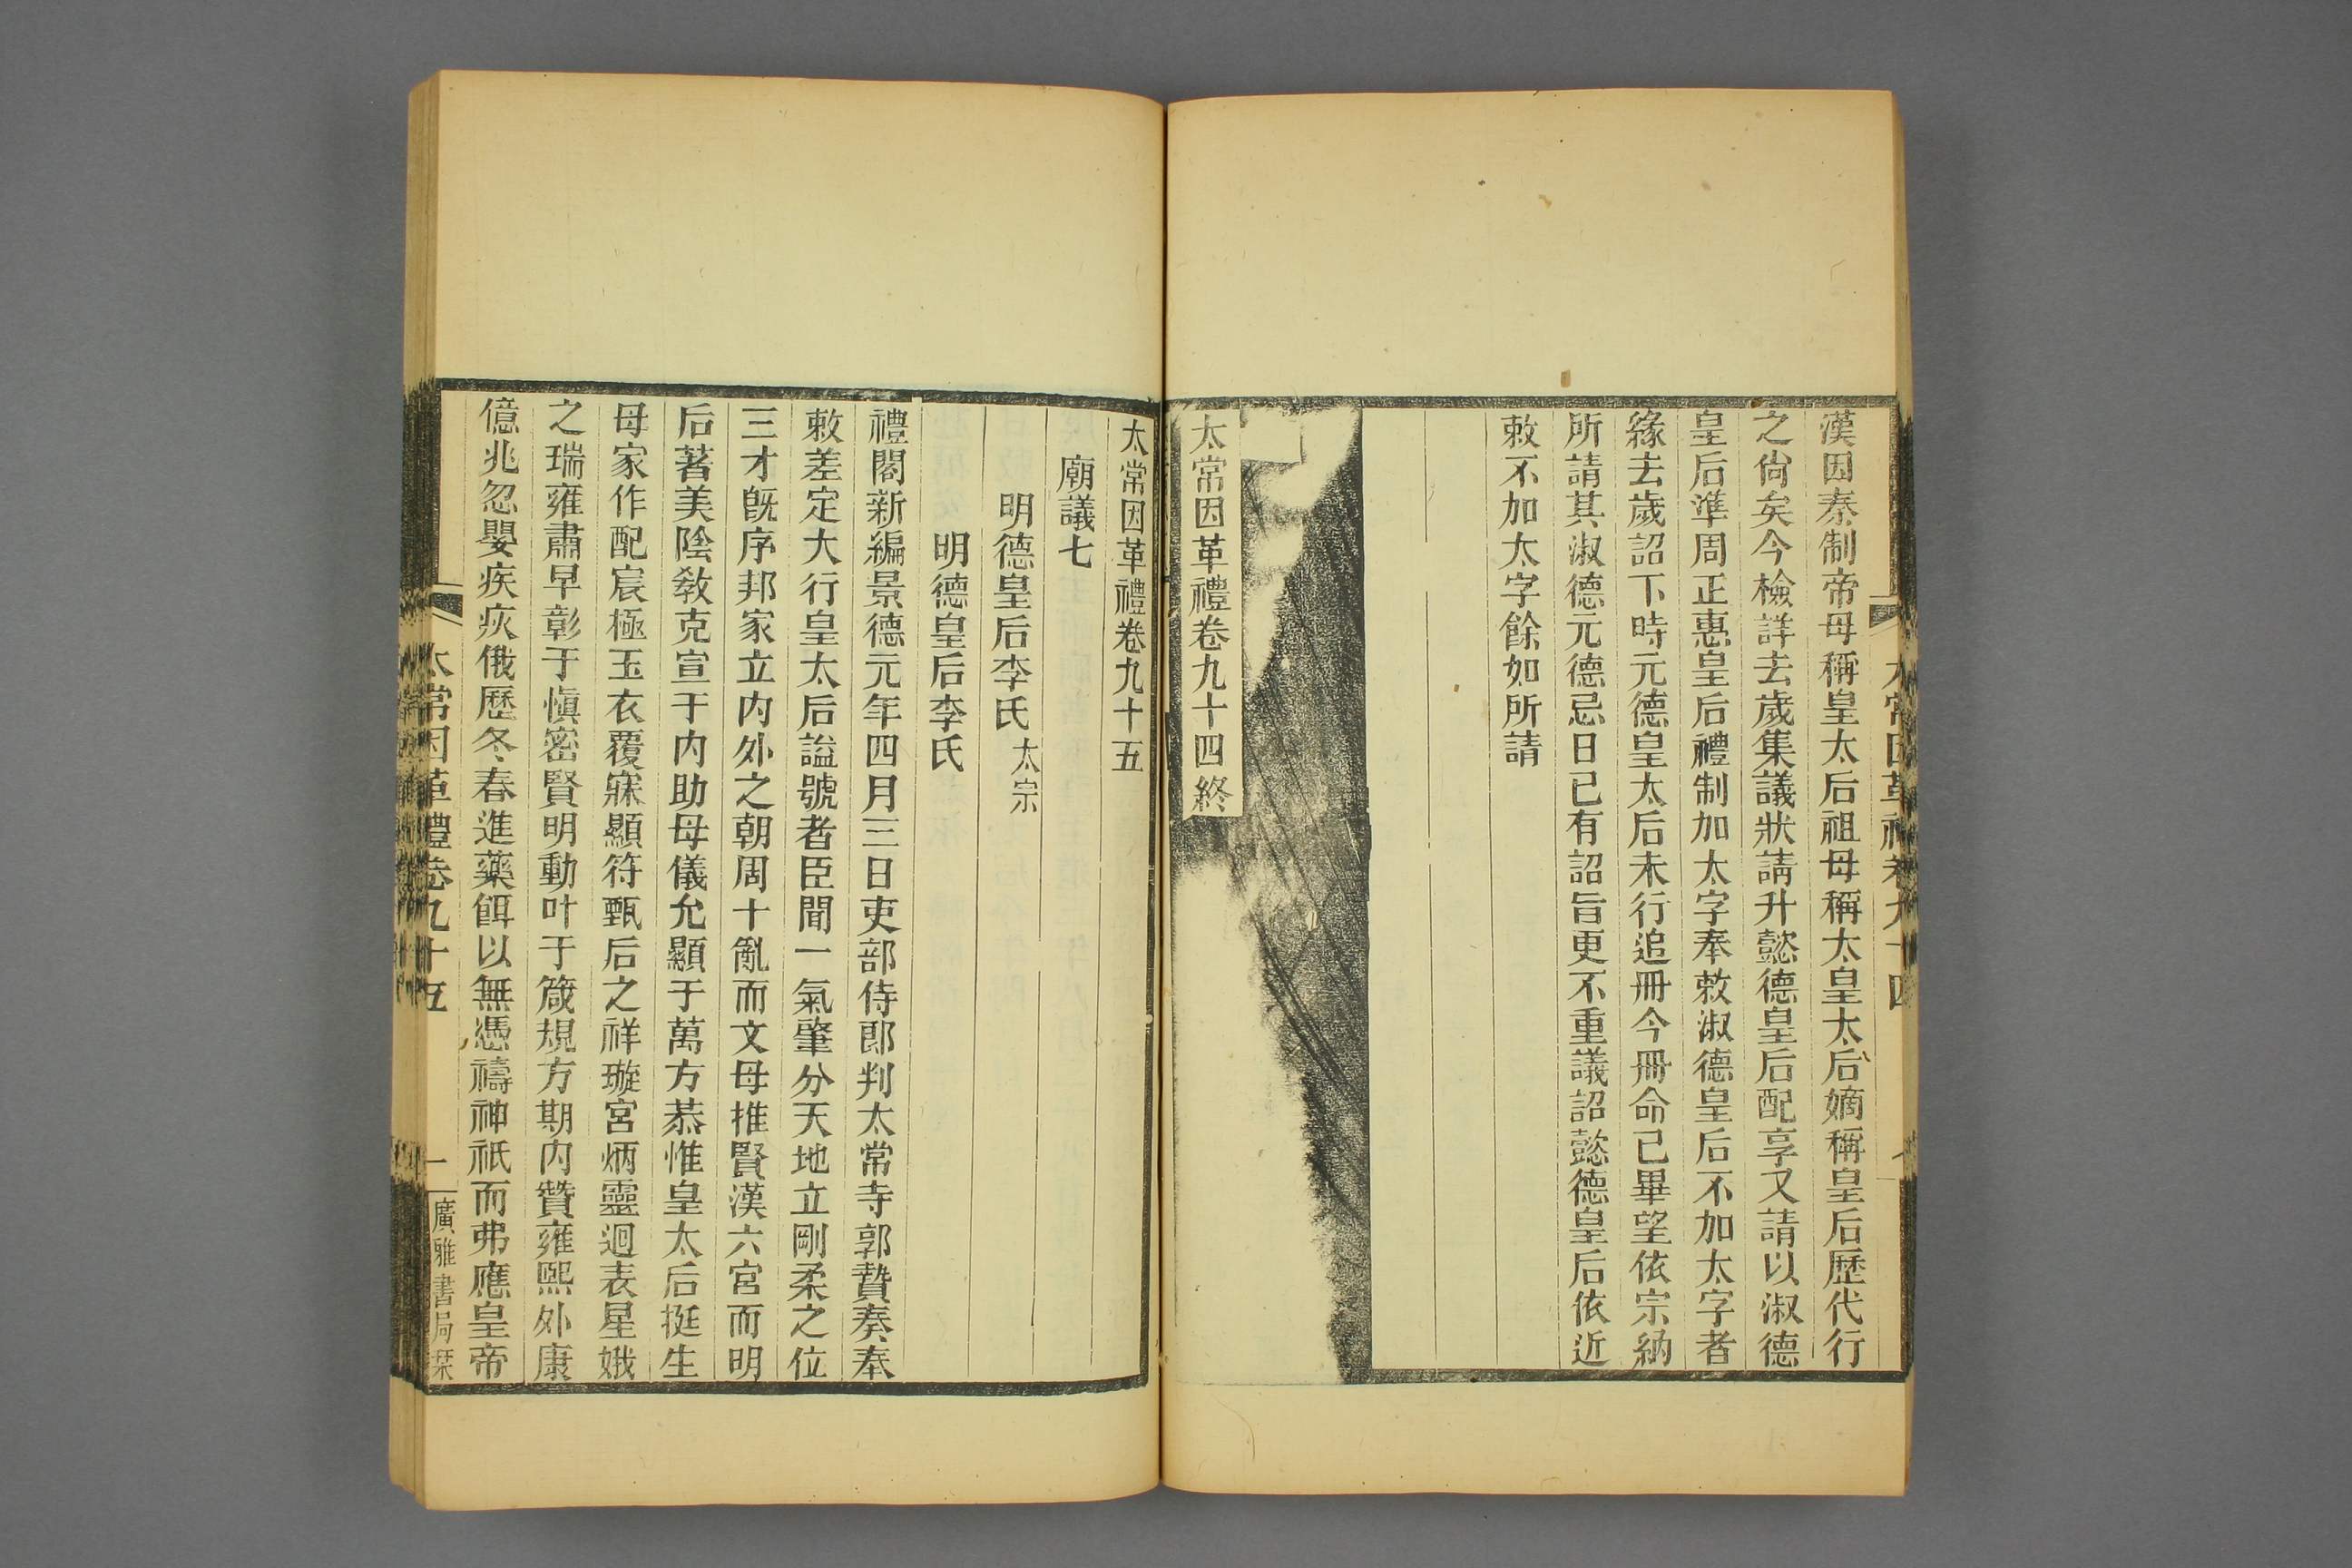 漢因秦制帝母稱皇太后祖母稱太皇太后嫡稱皇后歷代行
之尙矣今檢詳去歲集議狀請升懿德皇后配享又請以淑德
皇后準周正惠皇后禮制加太字奉敕淑德皇后不加太字者
緣去歲詔下時元德皇太后未行追冊今冊命已畢望依宗納
所請其淑德元德忌日已有詔旨更不重議詔懿德皇后依近
敕不加太字餘如所請
太常因革禮卷九十四終
太常因革禮卷九十五
廟議七
明德皇后李氏太宗
明德皇后李氏
禮閣新編景德元年四月三日吏部侍郎判太常寺郭贄奏奉
敕差定大行皇太后謚號者臣聞一氣肇分天地立剛柔之位
三才旣序邦家立內外之朝周十亂而文母推賢漢六宮而明
后著美陰敎克宣于內助母儀允顯于萬方恭惟皇太后挺生
母家作配宸極玉衣覆寐顯符甄后之祥璇宮炳靈迴表星娥
之瑞雍肅早彰于愼密賢明動叶于箴規方期內贊雍熙外康
億兆忽嬰疾疢俄歷冬春進藥餌以無憑禱神祇而弗應皇帝
太常因革禮卷九十五
一
廣雅書局栞